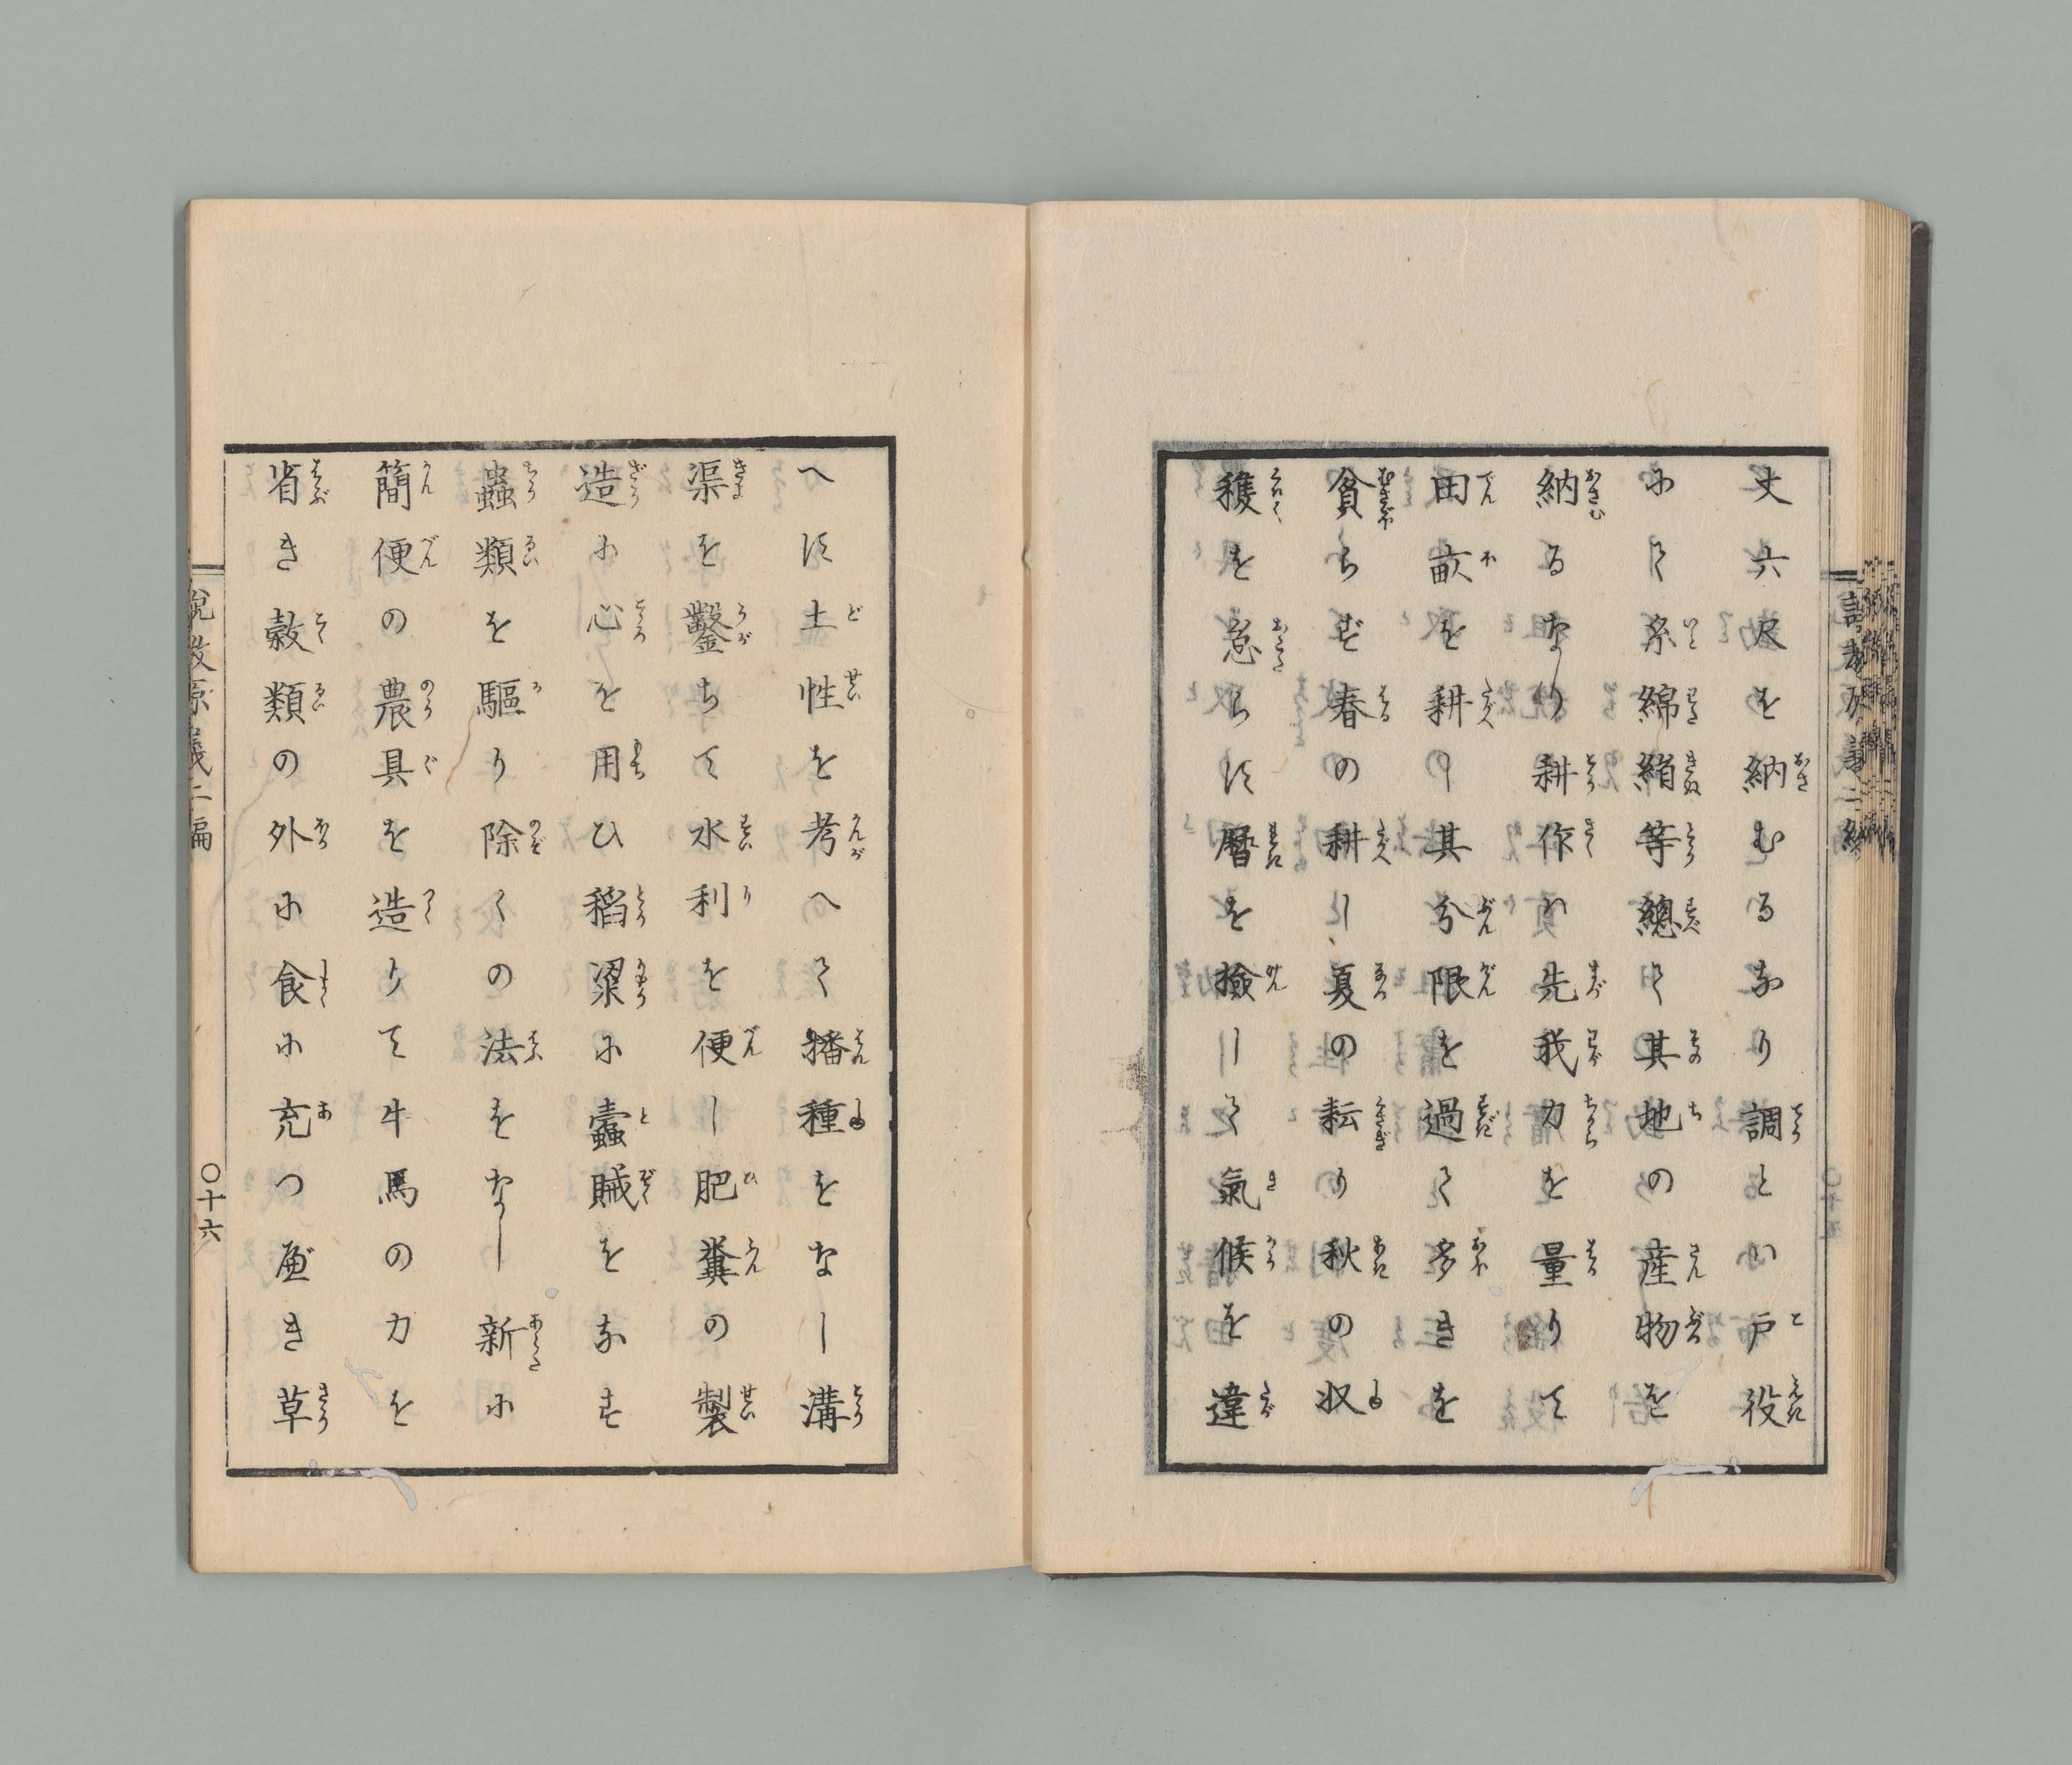 丈六尺を納むるなり調とハ戸役
にて糸綿絹等總て其地の産物を
納るなり耕作ハ先我力を量りて
田畝を耕し其分限を過て多きを
貧らず春の耕し夏の耘り秋の収
穫を怠らず暦を撿して氣候を違
へず土性を考へて播種をなし溝
渠を鑿ちて水利を便し肥糞の製
造に心を用ひ稻粱に蠧賊をなす
蟲類を驅り除くの法をなし新に
簡便の農具を造りて牛馬の力を
省き穀類の外に食に充つべき草
説教原義二編
〇十六